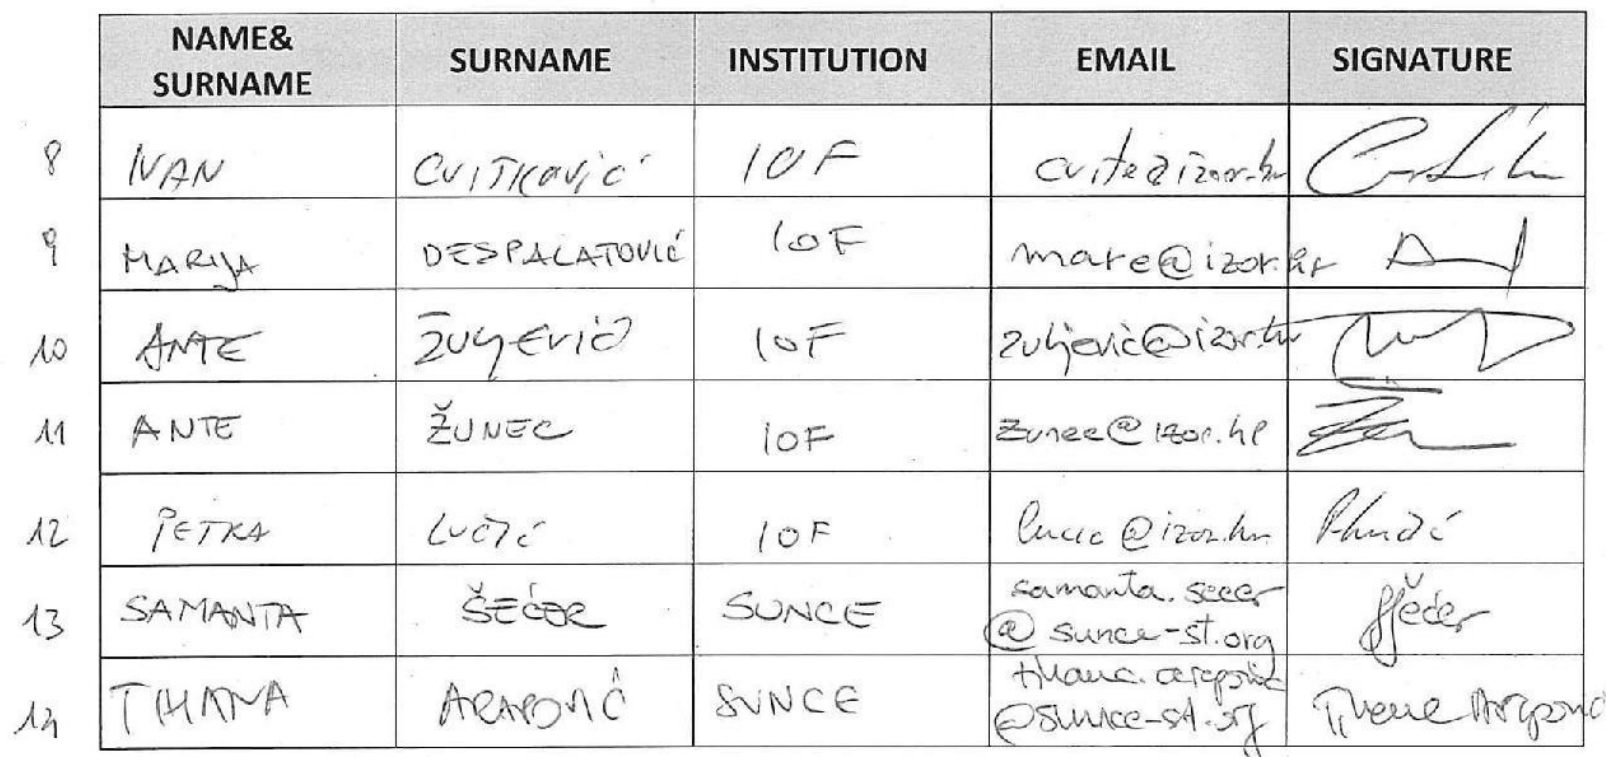 NAME& SURNAME SURNAME INSTITUTION EMAIL SIGNATURE
8 IVAN CVITKOVIĆ IOF cvite@izor.hr
9 MARIJA DESPALATOVIĆ IOF mare@izor.hr
10 ANTE ŽULJEVIĆ IOF zuljevic@izor.hr
11 ANTE ŽUNEC IOF zunec@izor.hr
12 PETRA LUČIĆ IOF lucic@izor.hr PLučić
13 SAMANTA ŠEĆER SUNCE samanta.secer
@sunce-st.org SŠećer
14 TIHANA ARAPOVIĆ SUNCE tihana.arapovic
@sunce-st.org Tihana Arapović